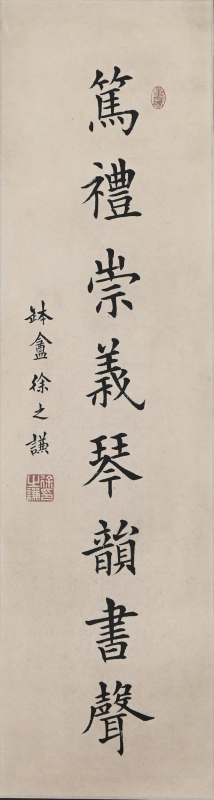 篤禮崇義琴韻書聲
鉢盦徐之謙